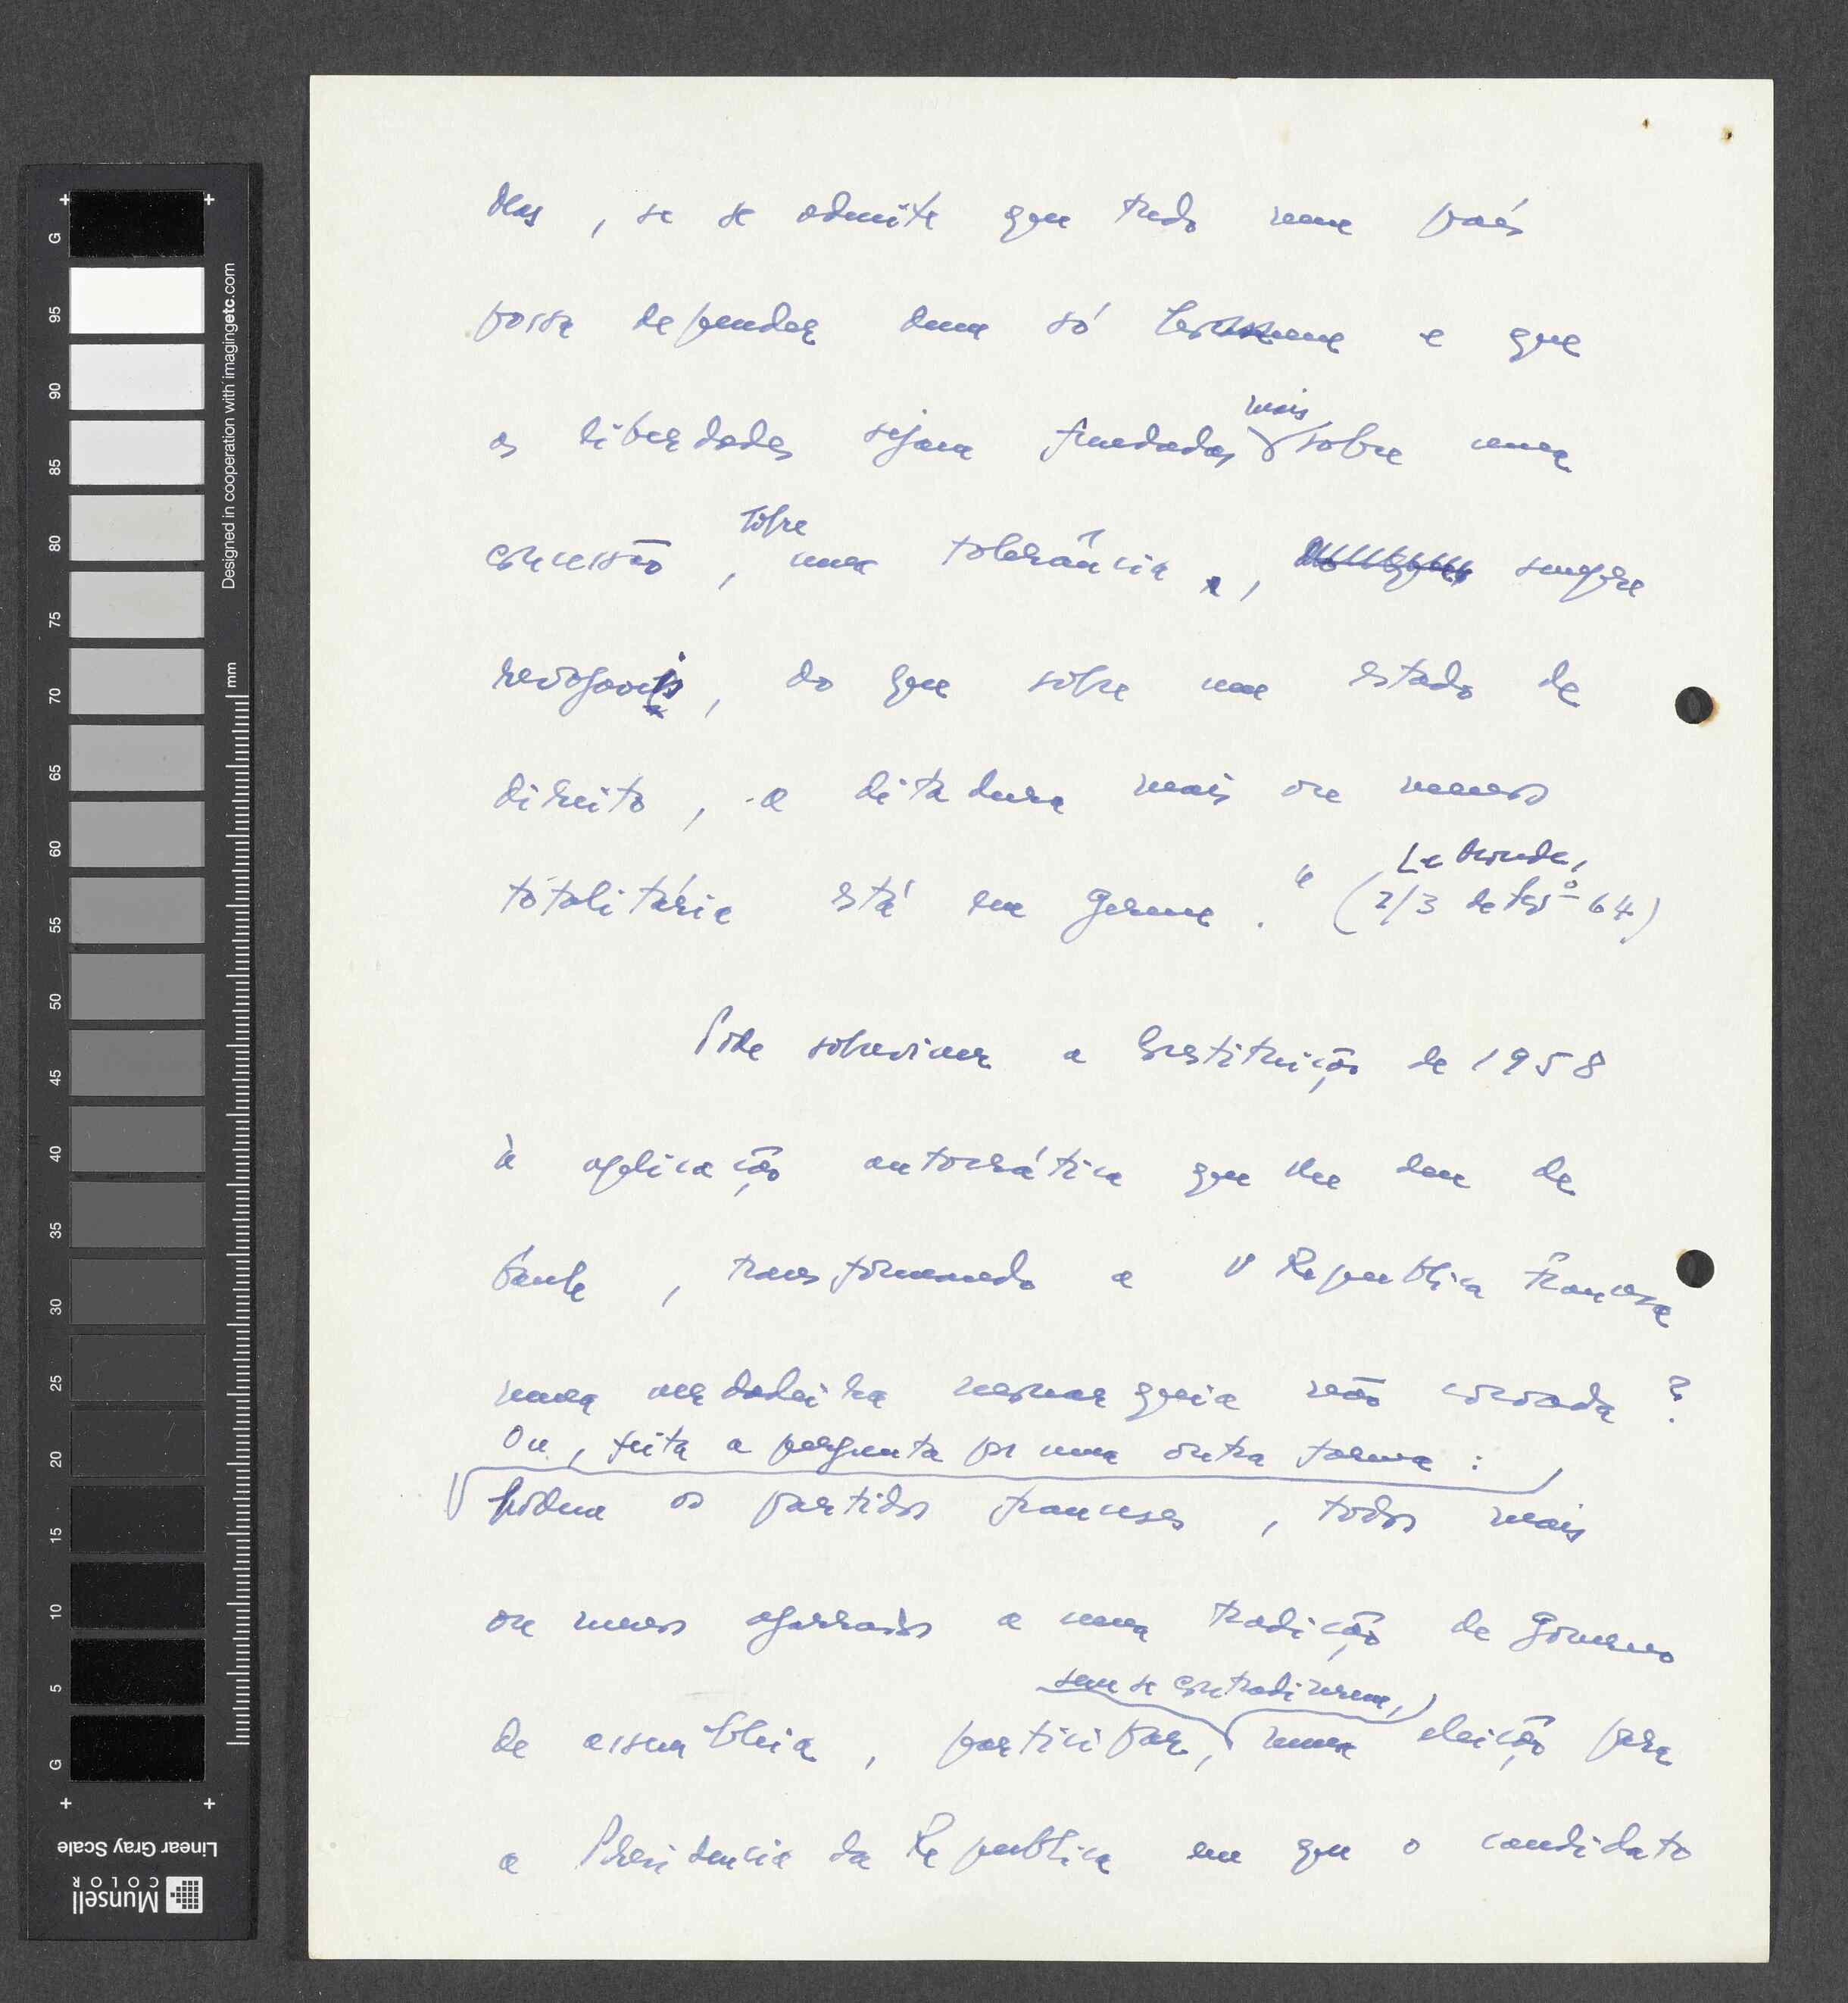 Mas, se se admite que tudo num país
possa depender dum só homem e que
as liberdades sejam fundadas mais sobre uma
concessão, sôbre uma tolerância, sempre
revogáveis, do que sôbre um estado de
direito, a ditadura mais ou menos
totalitária está em germe." (Le Monde,
2/3 de fevº 64)
Pode sobreviver a Constituição de 1958
à aplicação autocrática que lhe deu de
Gaulle, transformando a V Republica Francesa
numa verdadeira monarquia não coroada?
Ou, feita a pergunta por uma outra forma:
Podem os partidos franceses, todos mais
ou menos agarrados a uma tradição de Governo
de assembleia, participar, sem se contradizerem, numa eleição para
a Presidencia da Republica em que o candidato
G 95 90 85 80 75 70 65 60 55 50 45 40 35 30 25 20 15 10 5 G
mm
Designed in cooperation with imagingetc.com
Linear Gray Scale
Munsell
COLOR